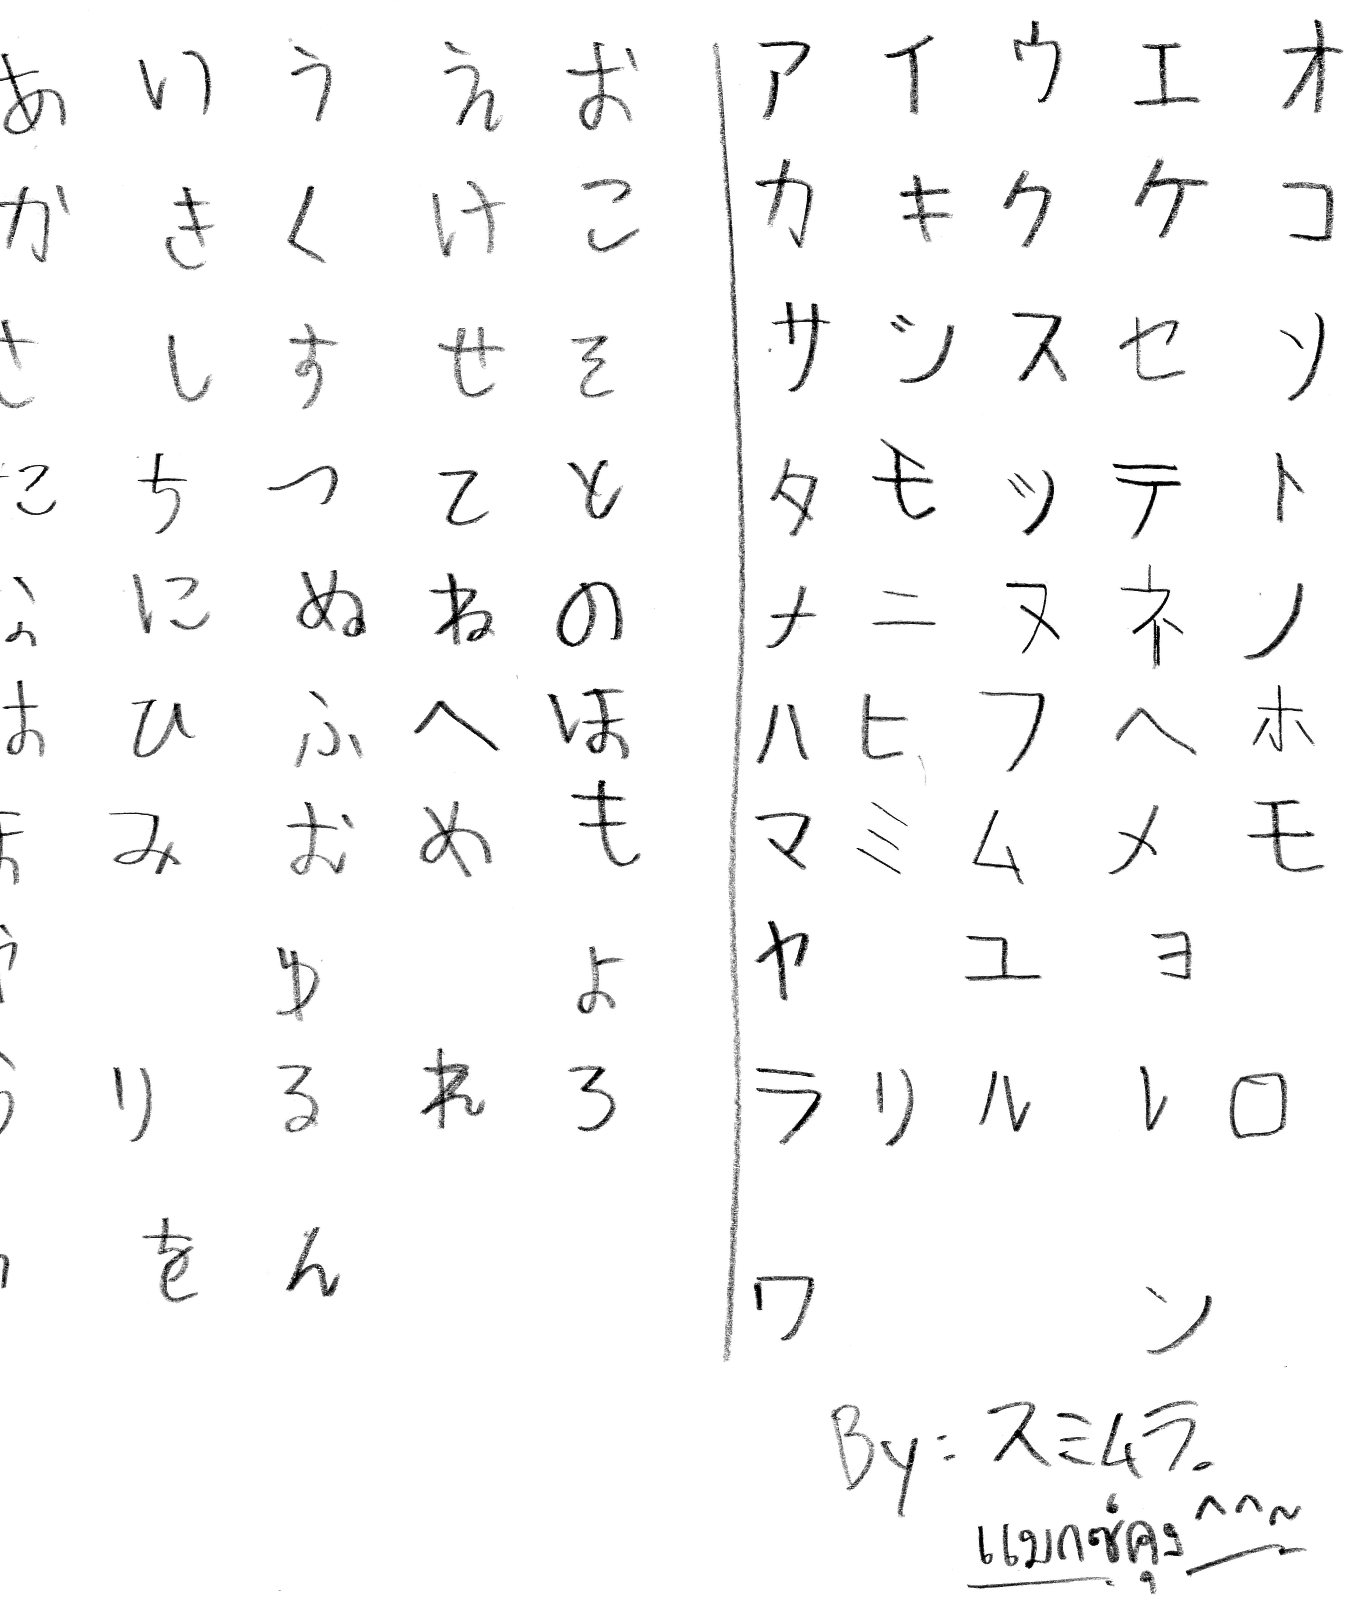 あ い う え お
か き く け こ
さ し す せ そ
た ち つ て と
な に ぬ ね の
は ひ ふ へ ほ
ま み む め も
や ゆ よ
ら り る れ ろ
を ん
ア イ ウ エ オ
カ キ ク ケ コ
サ シ ス セ ソ
タ チ ツ テ ト
ナ ニ ヌ ネ ノ
ハ ヒ フ ヘ ホ
マ ミ ム メ モ
ヤ ユ ヨ
ラ リ ル レ ロ
ワ ン
By: スミムラ.
แมกซ์คุง ^^~